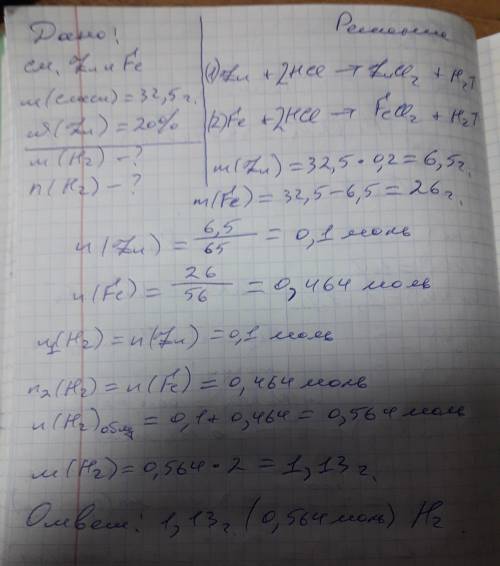 Дано:
Решение
см. Zn и Fe
m(смеси) = 32,5 г.
ω(Zn) = 20%
m(H₂) – ?
n(H₂) – ?
(1) Zn + 2HCl → ZnCl₂ + H₂↑
(2) Fe + 2HCl → FeCl₂ + H₂↑
m(Zn) = 32,5 · 0,2 = 6,5 г.
m(Fe) = 32,5 – 6,5 = 26 г.
n(Zn) = 6,5/65 = 0,1 моль
n(Fe) = 26/56 = 0,464 моль
n₁(H₂) = n(Zn) = 0,1 моль
n₂(H₂) = n(Fe) = 0,464 моль
n(H₂)общ = 0,1 + 0,464 = 0,564 моль
m(H₂) = 0,564 · 2 = 1,13 г.
Ответ: 1,13 г (0,564 моль) H₂